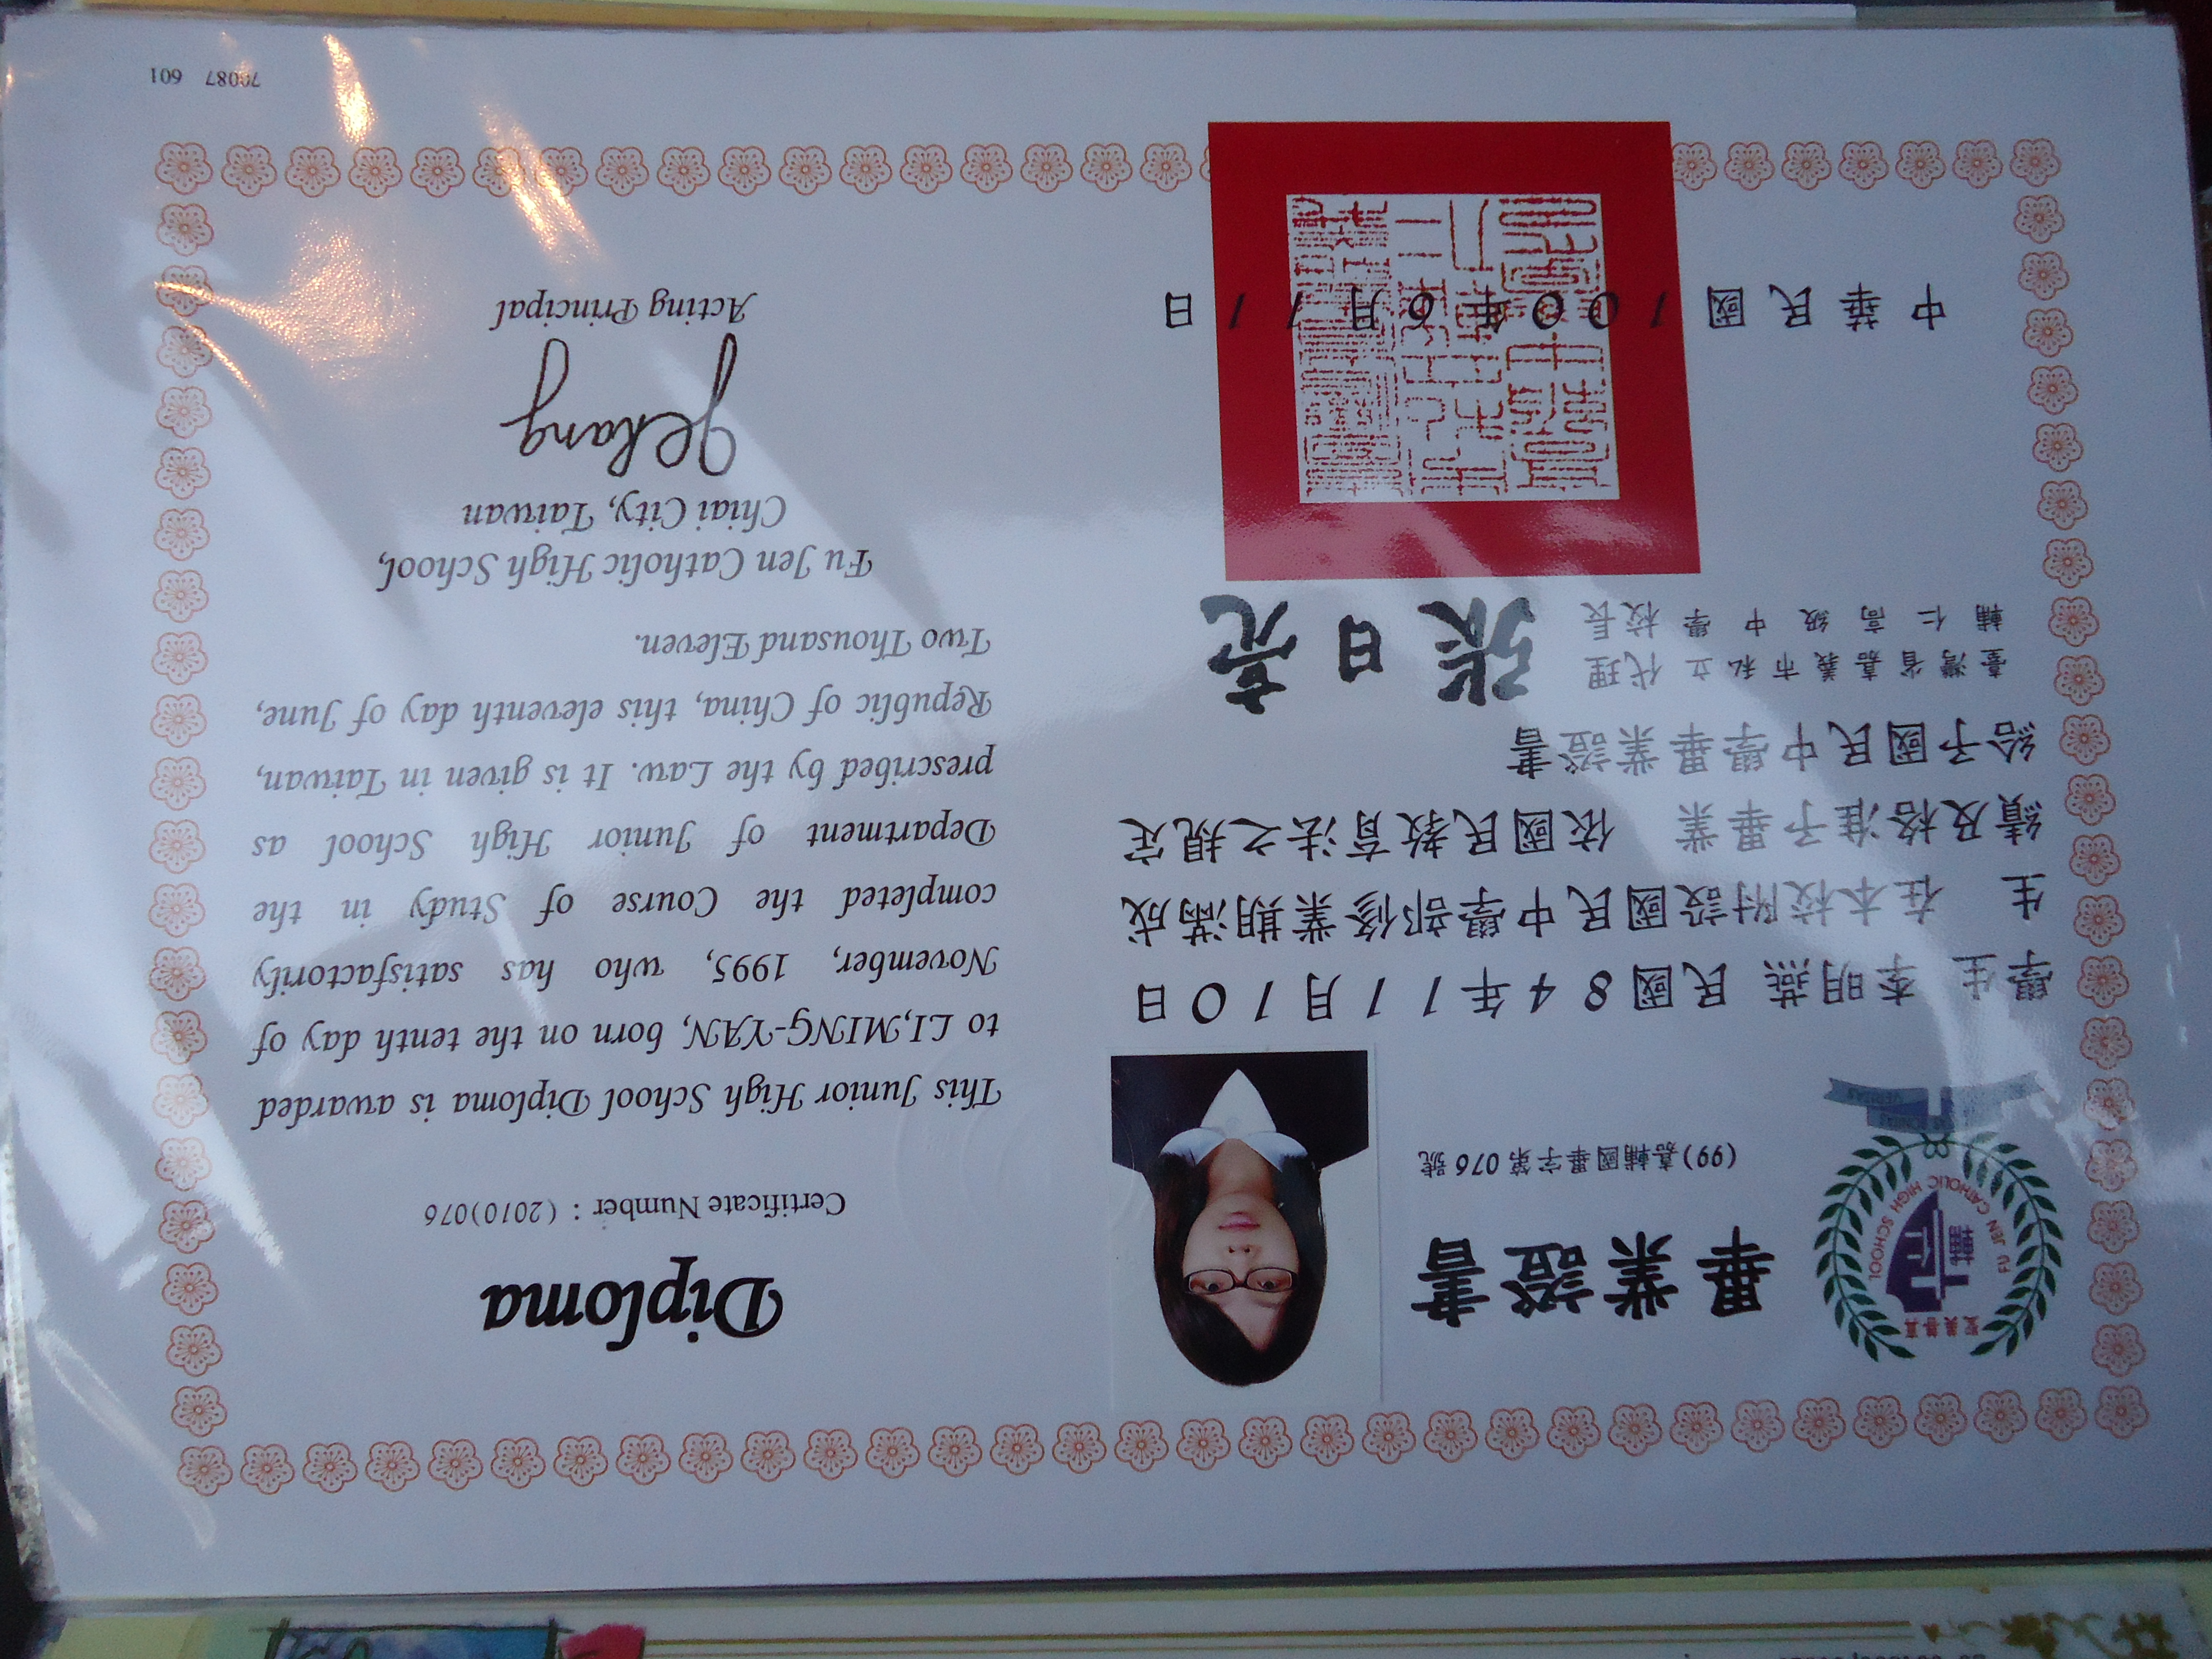 真善美聖
輔仁
FU JEN CATHOLIC HIGH SCHOOL
VERITAS
畢業證書
(99)嘉輔國畢字第076號
學生 李明燕 民國84年11月10日
生 在本校附設國民中學部修業期滿成
績及格准予畢業 依國民教育法之規定
給予國民中學畢業證書
臺灣省嘉義市私立
輔仁高級中學
代理
校長
張日亮
中華民國100年6月11日
Diploma
Certificate Number：(2010)076
This Junior High School Diploma is awarded
to LI,MING-YAN, born on the tenth day of
November, 1995, who has satisfactorily
completed the Course of Study in the
Department of Junior High School as
prescribed by the Law. It is given in Taiwan,
Republic of China, this eleventh day of June,
Two Thousand Eleven.
Fu Jen Catholic High School,
Chiai City, Taiwan
Acting Principal
70087 601